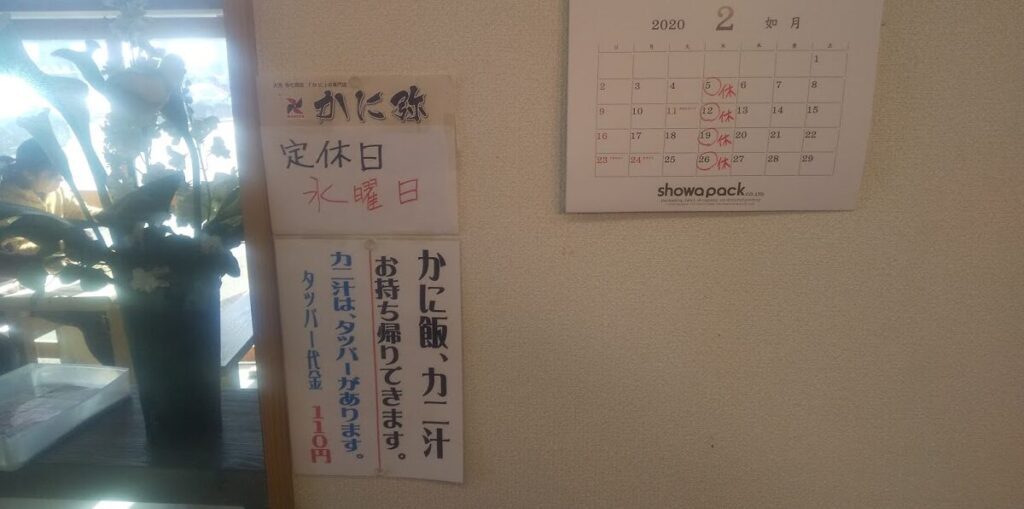 かに弥
定休日
水曜日
かに飯、カニ汁
お持ち帰りできます。
カニ汁は、タッパーがあります。
タッパー代金 110円
2020 2 如月
日 月 火 水 木 金 土
1
2 3 4 5休 6 7 8
9 10 11 12休 13 14 15
16 17 18 19休 20 21 22
23 24 25 26休 27 28 29
showapack CO.,LTD.